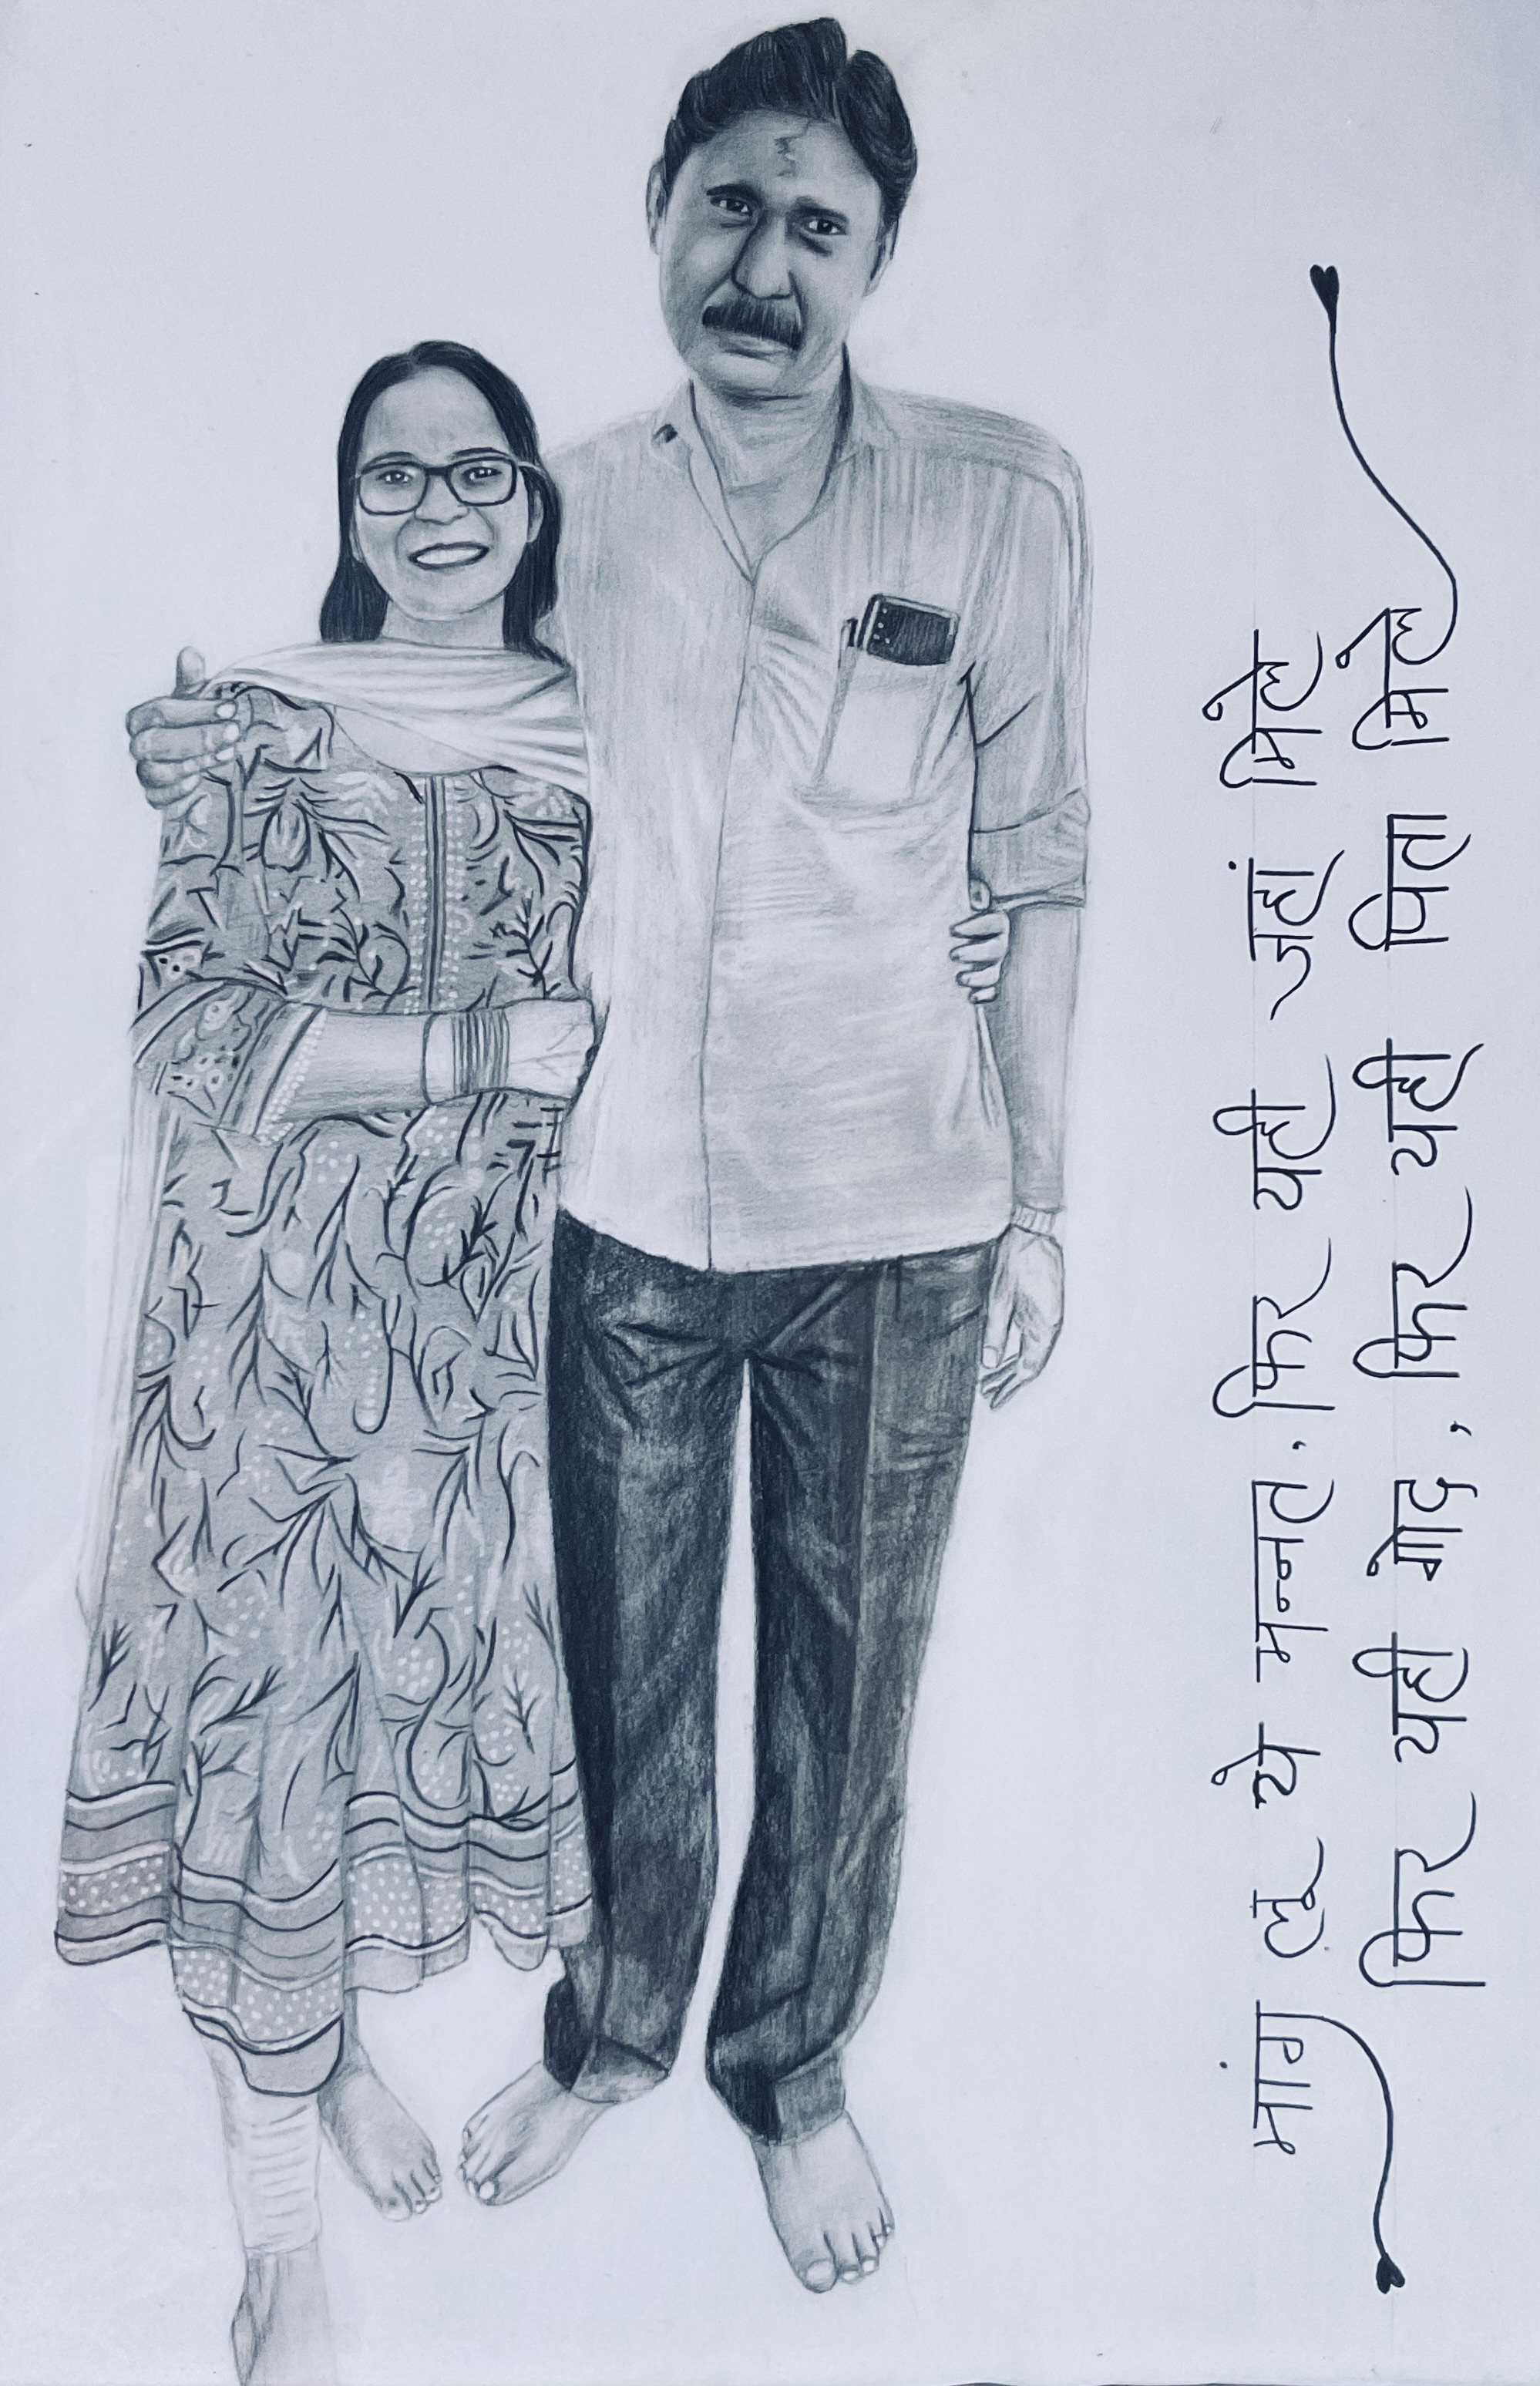 मांग लूं ये मन्नत. फिर यही जहां मिले
फिर यही गोद, फिर यही पिता मिले